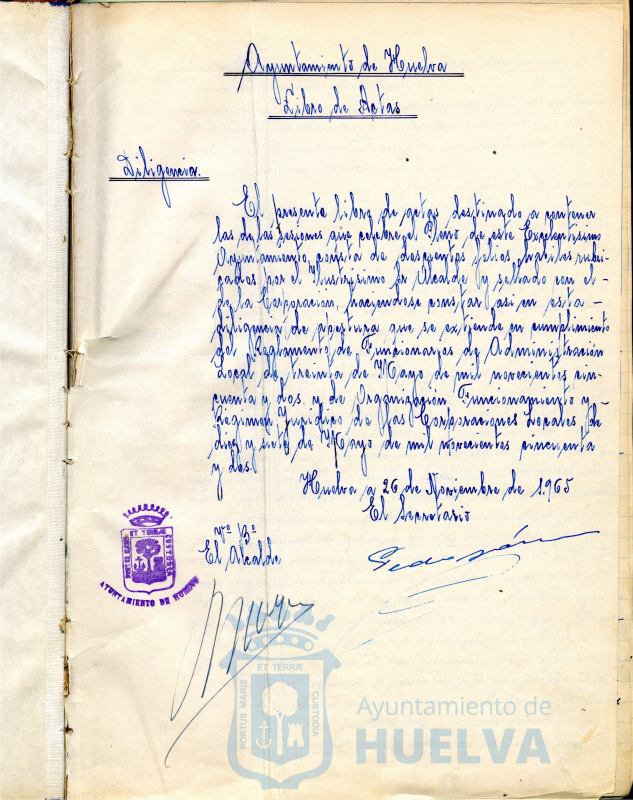 Ayuntamiento de Huelva
Libro de Actas
Diligencia.
El presente libro de actas destinado a contener
las de las sesiones que celebre el Pleno de este Excelentísimo
Ayuntamiento, consta de doscientos folios hábiles rubri-
cados por el Ilustrisimo Sr Alcalde y sellado con el-
de la Corporación, haciendose constar asi en esta -
diligencia de apertura que se extiende en cumplimiento
del Reglamento de Funcionarios de Administración
Local de treinta de Mayo de mil novecientos cin-
cuenta y dos, y de Organización Funcionamiento y
Regimen Juridico de las Corporaciones Locales de
diez y siete de Mayo de mil novecientos cincuenta
y dos.
Huelva a 26 de Noviembre de 1.965
El Secretario
Vº Bº
El Alcalde
PORTUS MARIS ET TERRÆ CUSTODIA
AYUNTAMIENTO DE HUELVA
PORTUS MARIS ET TERRÆ CUSTODIA
Ayuntamiento de
HUELVA